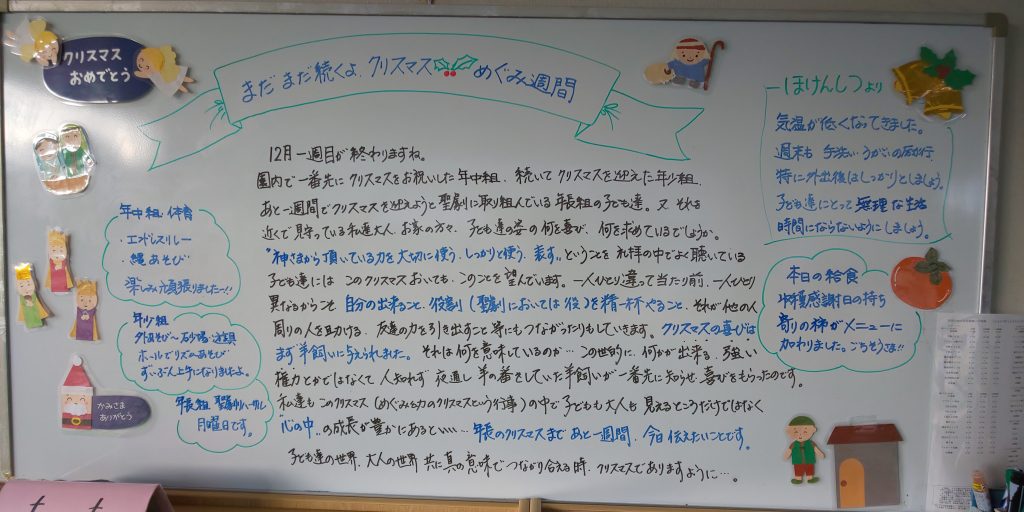 クリスマス
おめでとう
まだまだ続くよ、クリスマス めぐみ週間
12月一週目が終わりますね。
園内で一番先にクリスマスをお祝いした年中組、続いてクリスマスを迎えた年少組、
あと一週間でクリスマスを迎えようと聖劇に取り組んでいる年長組の子ども達。又それを
近くで見守っている私達大人、お家の方々、子ども達の姿の何を喜び、何を求めているでしょうか。
"神さまから頂いている力を大切に使う、しっかりと使う、表す"ということを礼拝の中でよく聴いている
子ども達にはこのクリスマスおいても、このことを望んでいます。一人ひとり違って当たり前、一人ひとり
異なるからこそ自分の出来ること、役割(聖劇においては役)を精一杯やること、それが他の人
周りの人を助ける、友達の力を引き出すこと等にもつながったりもしていきます。クリスマスの喜びは
まず羊飼いに与えられました。それは何を意味しているのか…この世的に、何かが出来る、強い
権力とかではなくて人知れず夜通し羊の番をしていた羊飼いが一番先に知らせ、喜びをもらったのです。
私達もこのクリスマス(めぐみ幼のクリスマスという行事)の中で子どもも大人も見えるところだけではなく
"心の中"の成長が豊かにあるといい…年長のクリスマスまであと一週間、今日伝えたいことです。
子ども達の世界、大人の世界共に真の意味でつながり合える時、クリスマスでありますように…。
年中組・体育
・エンドレスリレー
・縄あそび
楽しみ頑張りました〜!!
年少組
外あそび〜お砂場・遊具
ホールでリズムあそび
ず〜いぶん上手になりましたよ。
年長組 聖劇リハーサル
月曜日です。
かみさま
ありがとう
ほけんしつより
気温が低くなってきました。
週末も手洗い・うがいの励行、
特に外出後はしっかりとしましょう。
子ども達にとって無理な生活
時間にならないようにしましょう。
本日の給食
収穫感謝日の持ち
寄りの柿がメニューに
加わりました。ごちそうさま!!